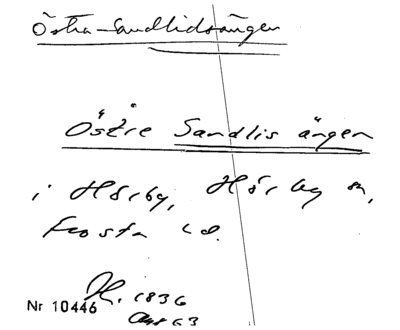 Östra Sandlidsängen
Östre Sandlis ängen
i Hörby, Hörby sn,
Frosta hd.
H. 1836
Nr 10446